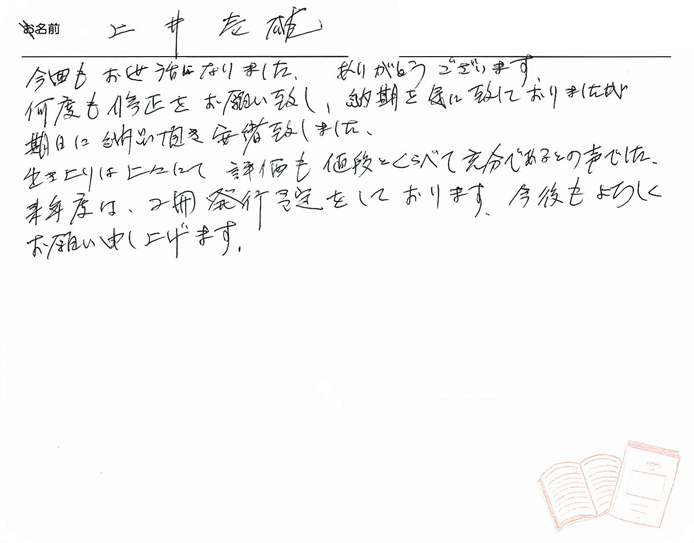 お名前 上井 雄
今回もお世話になりました。ありがとうございます。
何度も修正をお願い致し、納期を気に致しておりましたが
期日に納品頂き安緒致しました。
出き上りは上々にて 評価も値段とくらべて充分であるとの声でした。
来年度は、2冊発行予定をしております。今後もよろしく
お願い申し上げます。